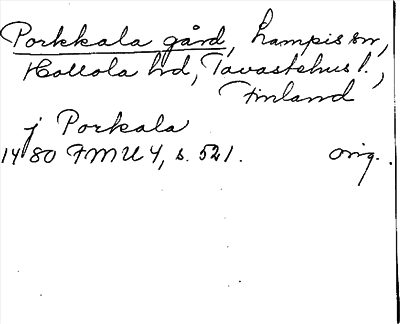 Porkkala gård, Lampis sn,
Hollola hd, Tavastehus l.,
Finland
j Porkala
1480 FMU 4, s. 521. orig.